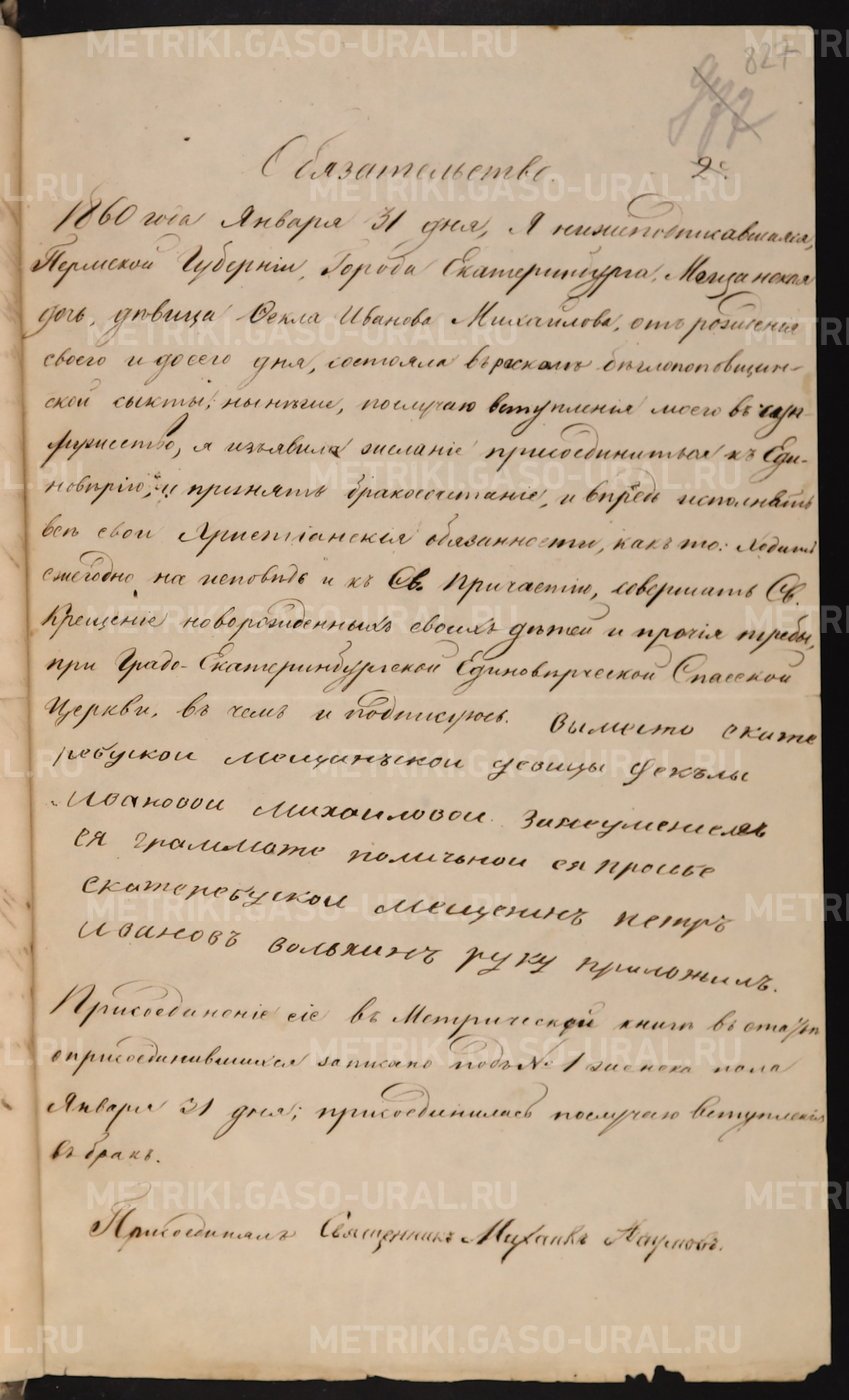 827
Обязательство. 2е.
1860 года Января 31 дня, Я нижеподписавшаяся,
Пермской Губерніи, Города Екатеринбурга, Мещанская
дочь, дѣвица Ѳекла Иванова Михайлова, отъ рожденія
своего и досего дня, состояла въ бѣглопоповщин-
ской сыкты; нынѣше, послучаю вступленія моего въ суп-
ружество, я изъявила желаніе присоединиться къ Еди-
новѣрію, и принять бракосочетаніе, и впредь исполнять
всѣ свои Христіанскія обязанности, какъ то: Ходить
ежегодно на исповѣдь и къ Св. Причастію, совершать Св.
Крещеніе новорожденныхъ своихъ дѣтей и прочія требы,
при Градо-Екатеринбургской Единовѣрческой Спасской
Церкви, въ чемъ и подписуюсь. Вымѣсто екате
ребуской мещанъской девицы Фекълы
Ивановой михаиловой занеуменіемъ
ея граммате поличьной ея прозбе
екатеребуской мещенинъ петръ
Ивановъ вольхинъ руку приложилъ.
Присоединеніе сіе въ Метрической книгѣ въ статьѣ
оприсоединившихся записано подъ № 1 женска пола
Января 31 дня; присоединилась послучаю вступленія
въ бракъ.
Присоединялъ Священникъ Михаилъ Наумовъ.
METRIKI.GASO-URAL.RU